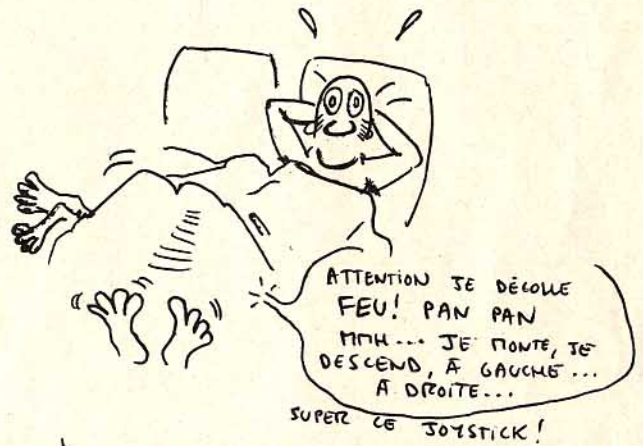 ATTENTION JE DÉCOLLE
FEU! PAN PAN
MMH... JE MONTE, JE
DESCEND, À GAUCHE...
À DROITE...
SUPER CE JOYSTICK!